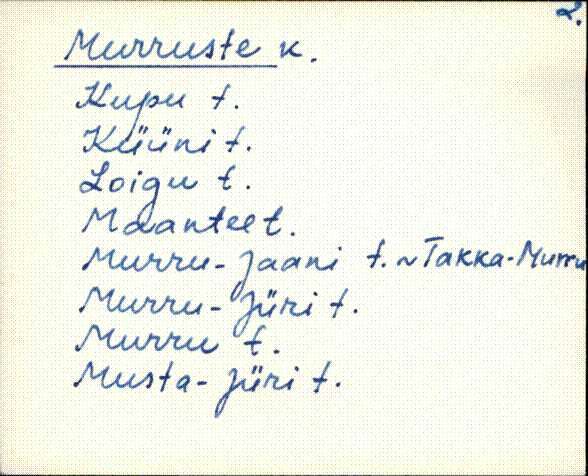 2.
Murruste k.
Kupu t.
Küüni t.
Loigu t.
Maantee t.
Murru-Jaani t. ~ Takka-Murru
Murru-Jüri t.
Murru t.
Musta-Jüri t.